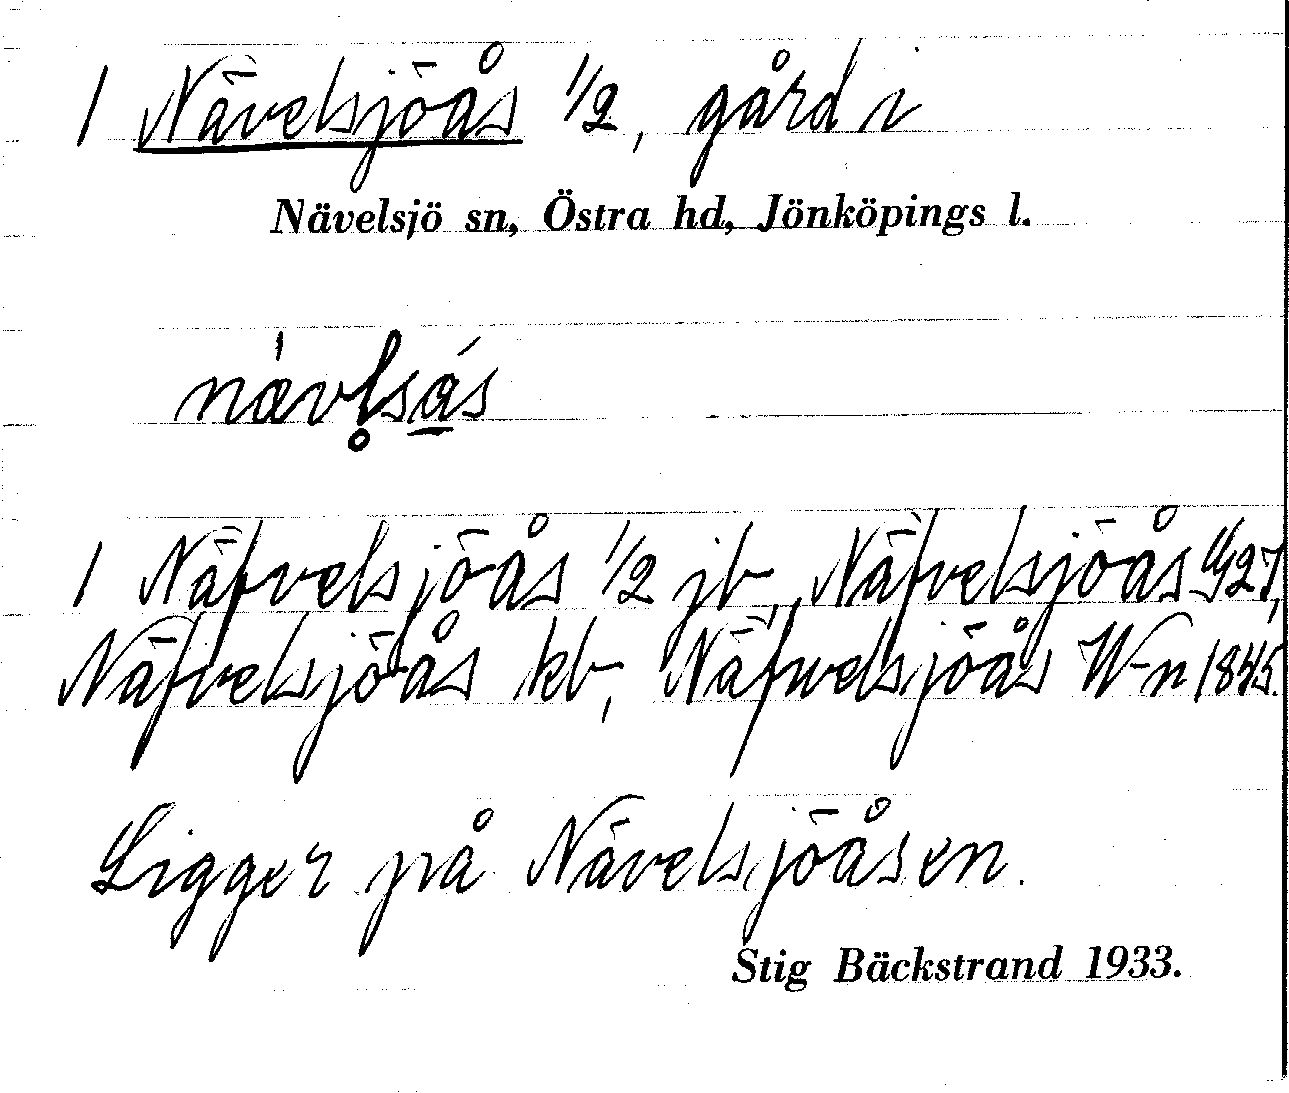 1 Nävelsjöås 1/2, gård i
Nävelsjö sn, Östra hd, Jönköpings l.
nävl̥sås
1 Näfvelsjöås 1/2 jb, Näfvelsjöås
Näfvelsjöås kb, Näfwelsjöås W-n 1845.
Ligger på Nävelsjöåsen.
Stig Bäckstrand 1933.